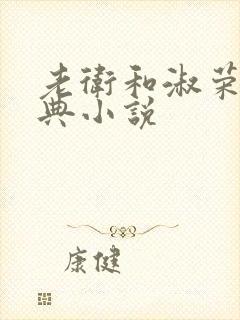 老衛和淑荣
典小说
康健